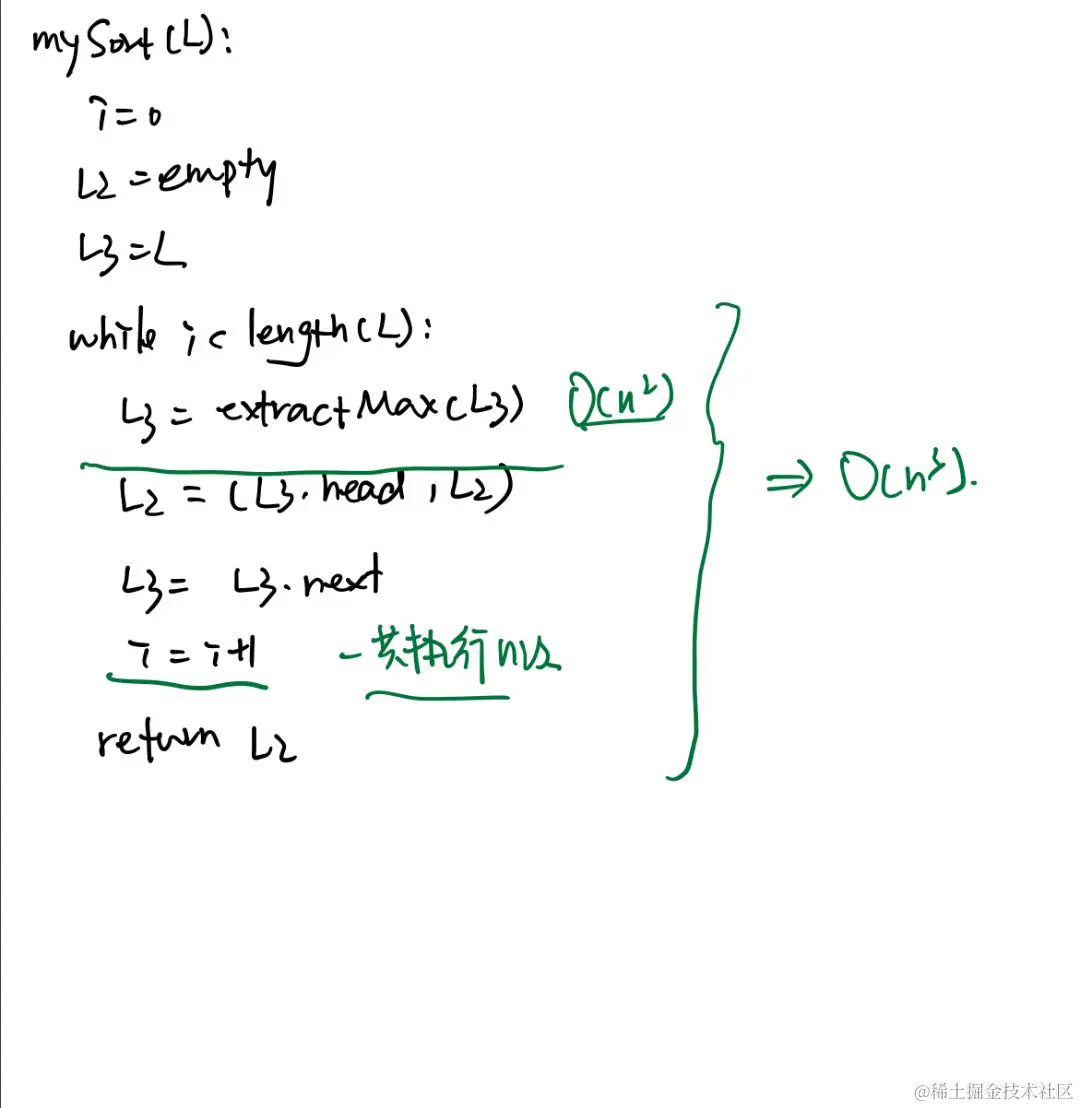 mySort(L):
i=0
L2=empty
L3=L
while i< length(L):
L3= extractMax(L3) O(n²)
L2 = (L3.head, L2)
⇒ O(n³).
L3= L3.next
i = i+1 一共执行n次
return L2
@稀土掘金技术社区